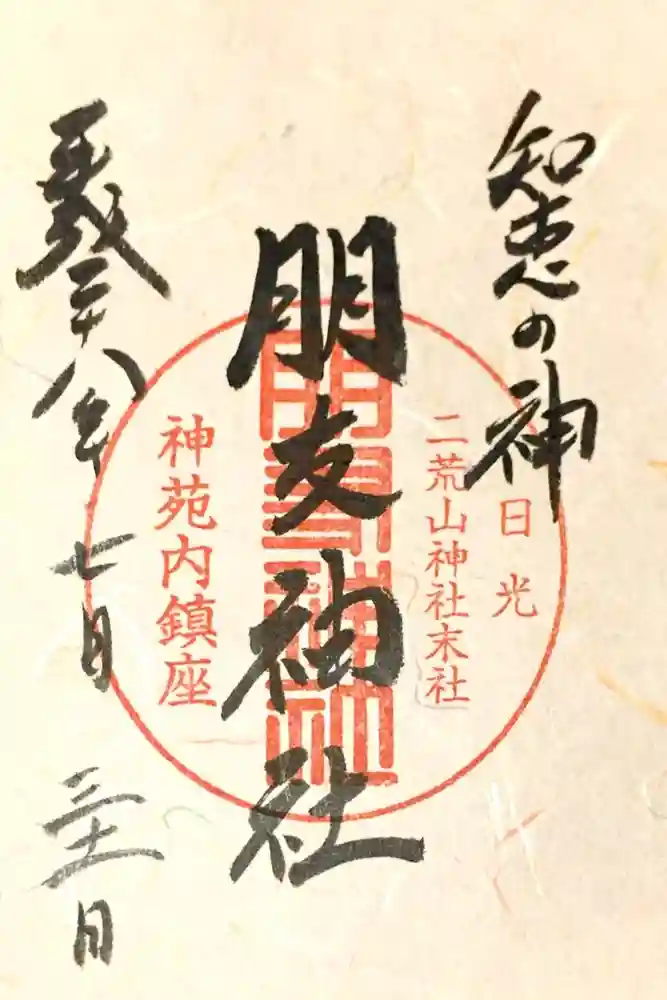 知恵の神
日光
二荒山神社末社
朋友神社
朋友神社
神苑内鎮座
平成二十八年
七月
三十一日